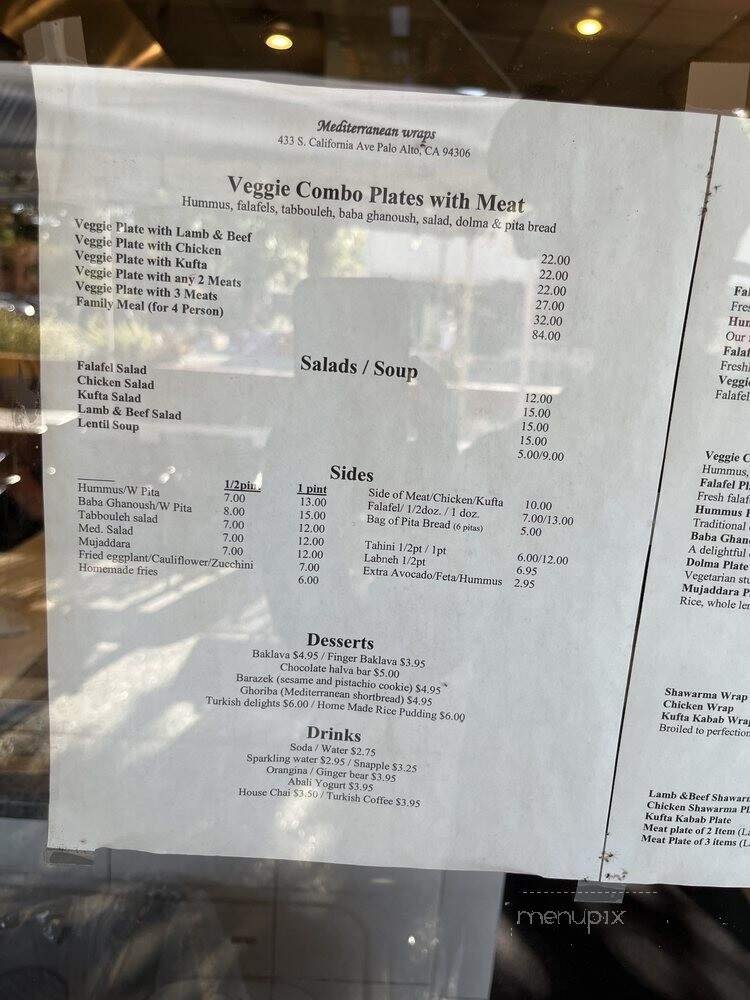 Mediterranean wraps
433 S. California Ave Palo Alto, CA 94306
Veggie Combo Plates with Meat
Hummus, falafels, tabbouleh, baba ghanoush, salad, dolma & pita bread
Veggie Plate with Lamb & Beef 22.00
Veggie Plate with Chicken 22.00
Veggie Plate with Kufta 22.00
Veggie Plate with any 2 Meats 27.00
Veggie Plate with 3 Meats 32.00
Family Meal (for 4 Person) 84.00
Salads / Soup
Falafel Salad 12.00
Chicken Salad 15.00
Kufta Salad 15.00
Lamb & Beef Salad 15.00
Lentil Soup 5.00/9.00
Sides
1/2pin. 1 pint
Hummus/W Pita 7.00 13.00
Baba Ghanoush/W Pita 8.00 15.00
Tabbouleh salad 7.00 12.00
Med. Salad 7.00 12.00
Mujaddara 7.00 12.00
Fried eggplant/Cauliflower/Zucchini 7.00
Homemade fries 6.00
Side of Meat/Chicken/Kufta 10.00
Falafel/ 1/2doz. / 1 doz. 7.00/13.00
Bag of Pita Bread (6 pitas) 5.00
Tahini 1/2pt / 1pt 6.00/12.00
Labneh 1/2pt 6.95
Extra Avocado/Feta/Hummus 2.95
Desserts
Baklava $4.95 / Finger Baklava $3.95
Chocolate halva bar $5.00
Barazek (sesame and pistachio cookie) $4.95
Ghoriba (Mediterranean shortbread) $4.95
Turkish delights $6.00 / Home Made Rice Pudding $6.00
Drinks
Soda / Water $2.75
Sparkling water $2.95 / Snapple $3.25
Orangina / Ginger bear $3.95
Abali Yogurt $3.95
House Chai $3.50 / Turkish Coffee $3.95
Fal
Fres
Hum
Our
Falaf
Freshl
Veggi
Falafel
Veggie C
Hummus,
Falafel Pl
Fresh falaf
Hummus P
Traditional
Baba Ghan
A delightful
Dolma Plate
Vegetarian stu
Mujaddara P
Rice, whole len
Shawarma Wrap
Chicken Wrap
Kufta Kabab Wrap
Broiled to perfection
Lamb &Beef Shawarm
Chicken Shawarma Pl
Kufta Kabab Plate
Meat plate of 2 Item (La
Meat Plate of 3 items (L
menupix